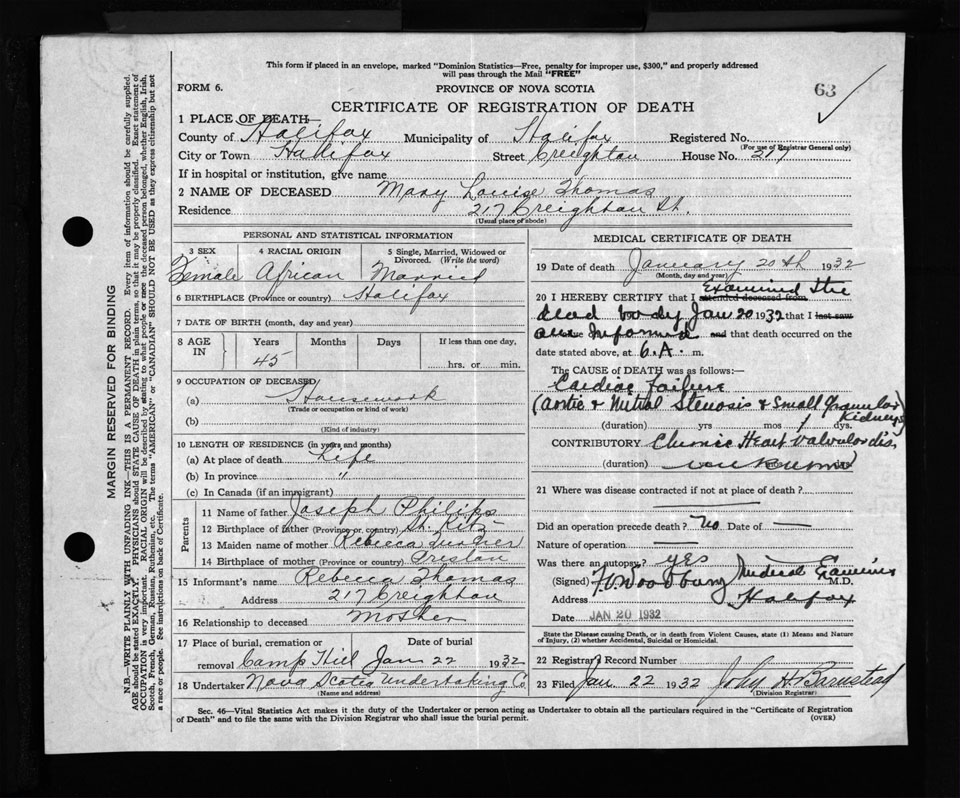 This form if placed in an envelope, marked "Dominion Statistics—Free, penalty for improper use, $300," and properly addressed
will pass through the Mail "FREE"
FORM 6.
PROVINCE OF NOVA SCOTIA
63
CERTIFICATE OF REGISTRATION OF DEATH
1 PLACE OF DEATH—
County of Halifax Municipality of Halifax Registered No.
(For use of Registrar General only)
City or Town Halifax Street Creighton House No. 217
If in hospital or institution, give name
2 NAME OF DECEASED Mary Louise Thomas
Residence 217 Creighton St.
(Usual place of abode)
PERSONAL AND STATISTICAL INFORMATION
3 SEX 4 RACIAL ORIGIN 5 Single, Married, Widowed or Divorced. (Write the word)
Female African Married
6 BIRTHPLACE (Province or country) Halifax
7 DATE OF BIRTH (month, day and year)
8 AGE IN Years Months Days If less than one day,
45 hrs. or min.
9 OCCUPATION OF DECEASED
(a) Housework
(Trade or occupation or kind of work)
(b)
(Kind of industry)
10 LENGTH OF RESIDENCE (in years and months)
(a) At place of death Life
(b) In province "
(c) In Canada (if an immigrant)
Parents
11 Name of father Joseph Philips
12 Birthplace of father (Province or country) St. Kitz
13 Maiden name of mother Rebecca
14 Birthplace of mother (Province or country)
15 Informant's name Rebecca Thomas
Address 217 Creighton
16 Relationship to deceased Mother
17 Place of burial, cremation or removal Camp Hill Date of burial Jan 22 1932
18 Undertaker Nova Scotia Undertaking Co
(Name and address)
MEDICAL CERTIFICATE OF DEATH
19 Date of death January 20th 1932
(Month, day and year)
20 I HEREBY CERTIFY that I attended deceased from Examined the
dead body Jan 20 1932 that I last saw
am Informed and that death occurred on the
date stated above, at 6.A. m.
The CAUSE of DEATH was as follows:—
Cardiac failure
(aortic & Mitral Stenosis & Small granular Kidneys)
(duration) yrs. mos. dys.
CONTRIBUTORY Chronic Heart Valvular dis.
(duration) unknown
21 Where was disease contracted if not at place of death?
Did an operation precede death? No Date of —
Nature of operation —
Was there an autopsy? yes
(Signed) F. V. Woodbury Medical Examiner M.D.
Address Halifax
Date JAN 20 1932
State the Disease causing Death, or in death from Violent Causes, state (1) Means and Nature
of Injury, (2) whether Accidental, Suicidal or Homicidal.
22 Registrar's Record Number
23 Filed Jan 22 1932 John H. Barnstead
(Division Registrar)
Sec. 46—Vital Statistics Act makes it the duty of the Undertaker or person acting as Undertaker to obtain all the particulars required in the "Certificate of Registration
of Death" and to file the same with the Division Registrar who shall issue the burial permit.
(OVER)
MARGIN RESERVED FOR BINDING
N.B.—WRITE PLAINLY WITH UNFADING INK—THIS IS A PERMANENT RECORD. Every item of information should be carefully supplied.
AGE should be stated EXACTLY. PHYSICIANS should state CAUSE OF DEATH in plain terms, so that it may be properly classified. Exact statement of
OCCUPATION is very important. RACIAL ORIGIN will be described by stating to what people or race the deceased person belonged, whether English, Irish,
Scotch, French, German, Russian, Ruthenian, etc. The terms "AMERICAN" or "CANADIAN" SHOULD NOT BE USED as they express citizenship but not
a race or people. See instructions on back of Certificate.